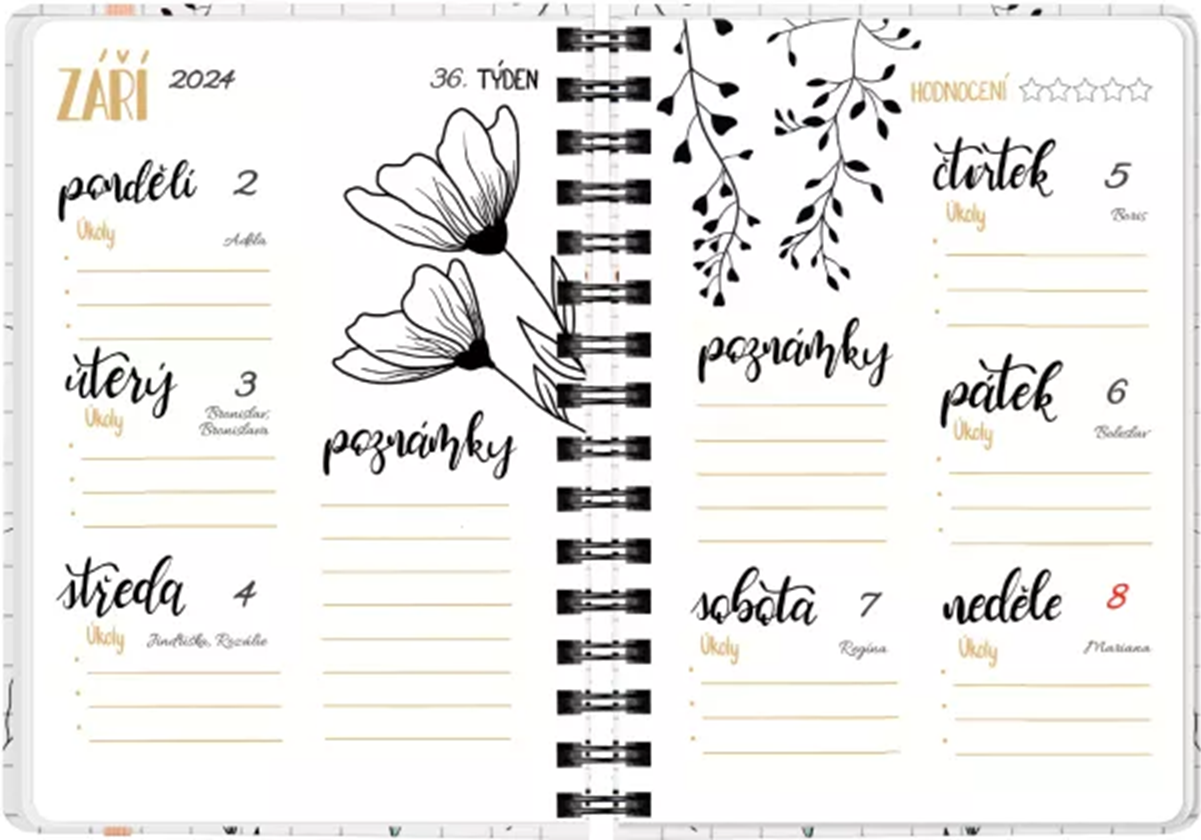 ZÁŘÍ 2024
36. TÝDEN
pondělí 2
Úkoly
Adéla
úterý 3
Úkoly
Bronislav,
Bronislava
středa 4
Úkoly
Jindřiška, Rozálie
poznámky
HODNOCENÍ
poznámky
čtvrtek 5
Úkoly
Boris
pátek 6
Úkoly
Boleslav
sobota 7
Úkoly
Regína
neděle 8
Úkoly
Mariana